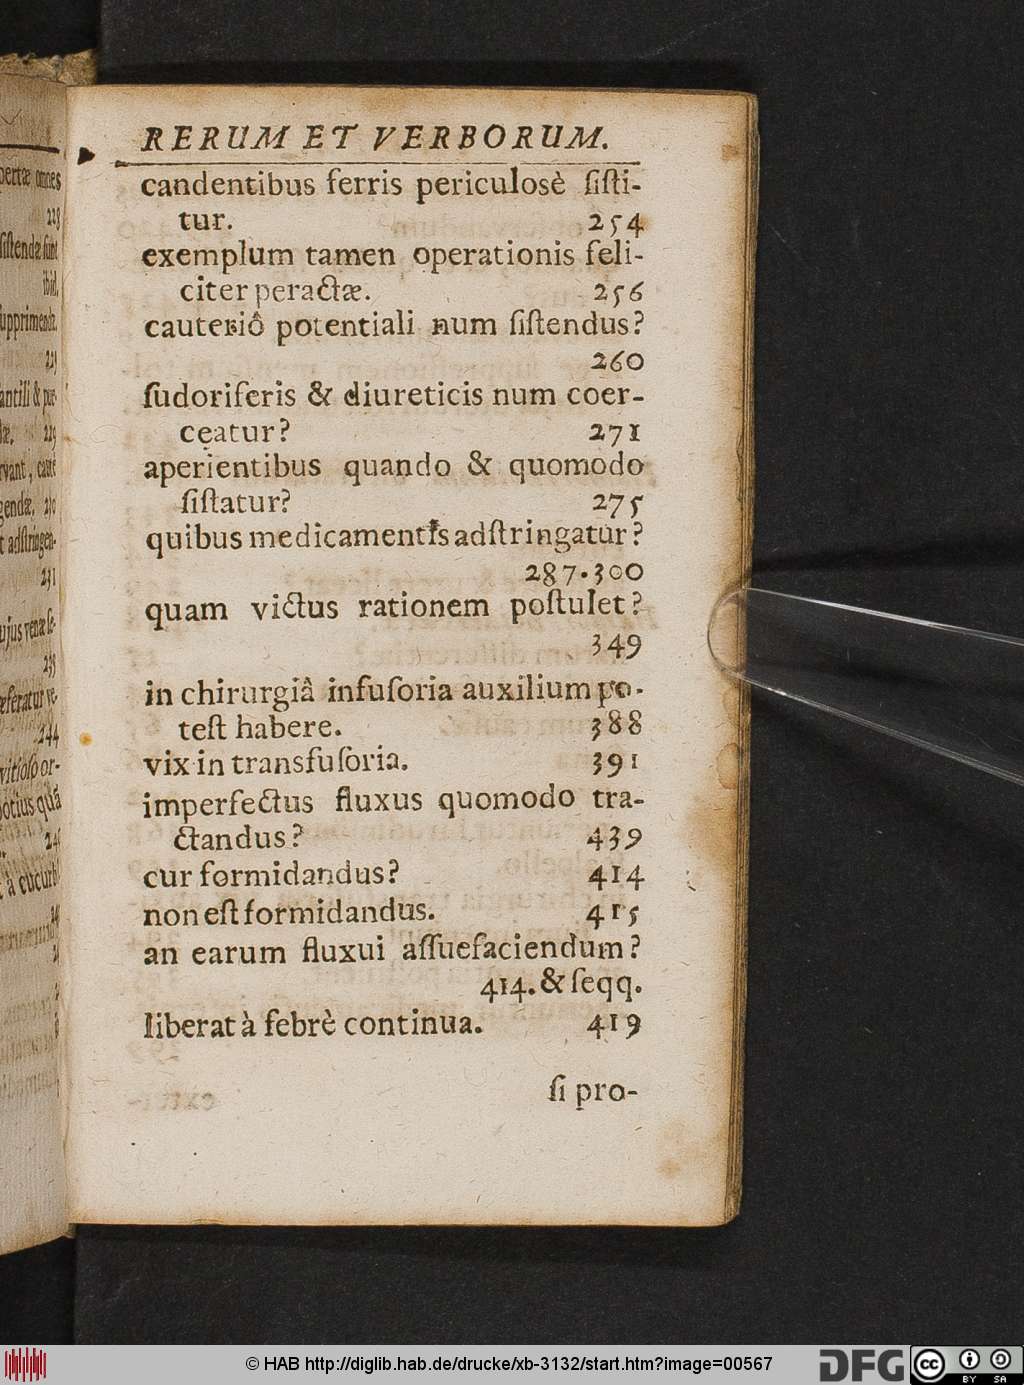 RERUM ET VERBORUM.
candentibus ferris periculosè ſiſti-
tur. 254
exemplum tamen operationis feli-
citer peractæ. 256
cauteriô potentiali num ſiſtendus?
260
ſudoriferis & diureticis num coer-
ceatur? 271
aperientibus quando & quomodo
ſiſtatur? 275
quibus medicamentis adſtringatur?
287. 300
quam victus rationem poſtulet?
349
in chirurgiâ infuſoria auxilium po-
teſt habere. 388
vix in transfuſoria. 391
imperfectus fluxus quomodo tra-
ctandus? 439
cur formidandus? 414
non eſt formidandus. 415
an earum fluxui aſſuefaciendum?
414. & ſeqq.
liberat à febrè continua. 419
ſi pro-
omnes
228
ſiſtendæ ſunt
ibid.
229
231
244
vitioſo or-
potius quã
© HAB http://diglib.hab.de/drucke/xb-3132/start.htm?image=00567
DFG
cc
BY SA